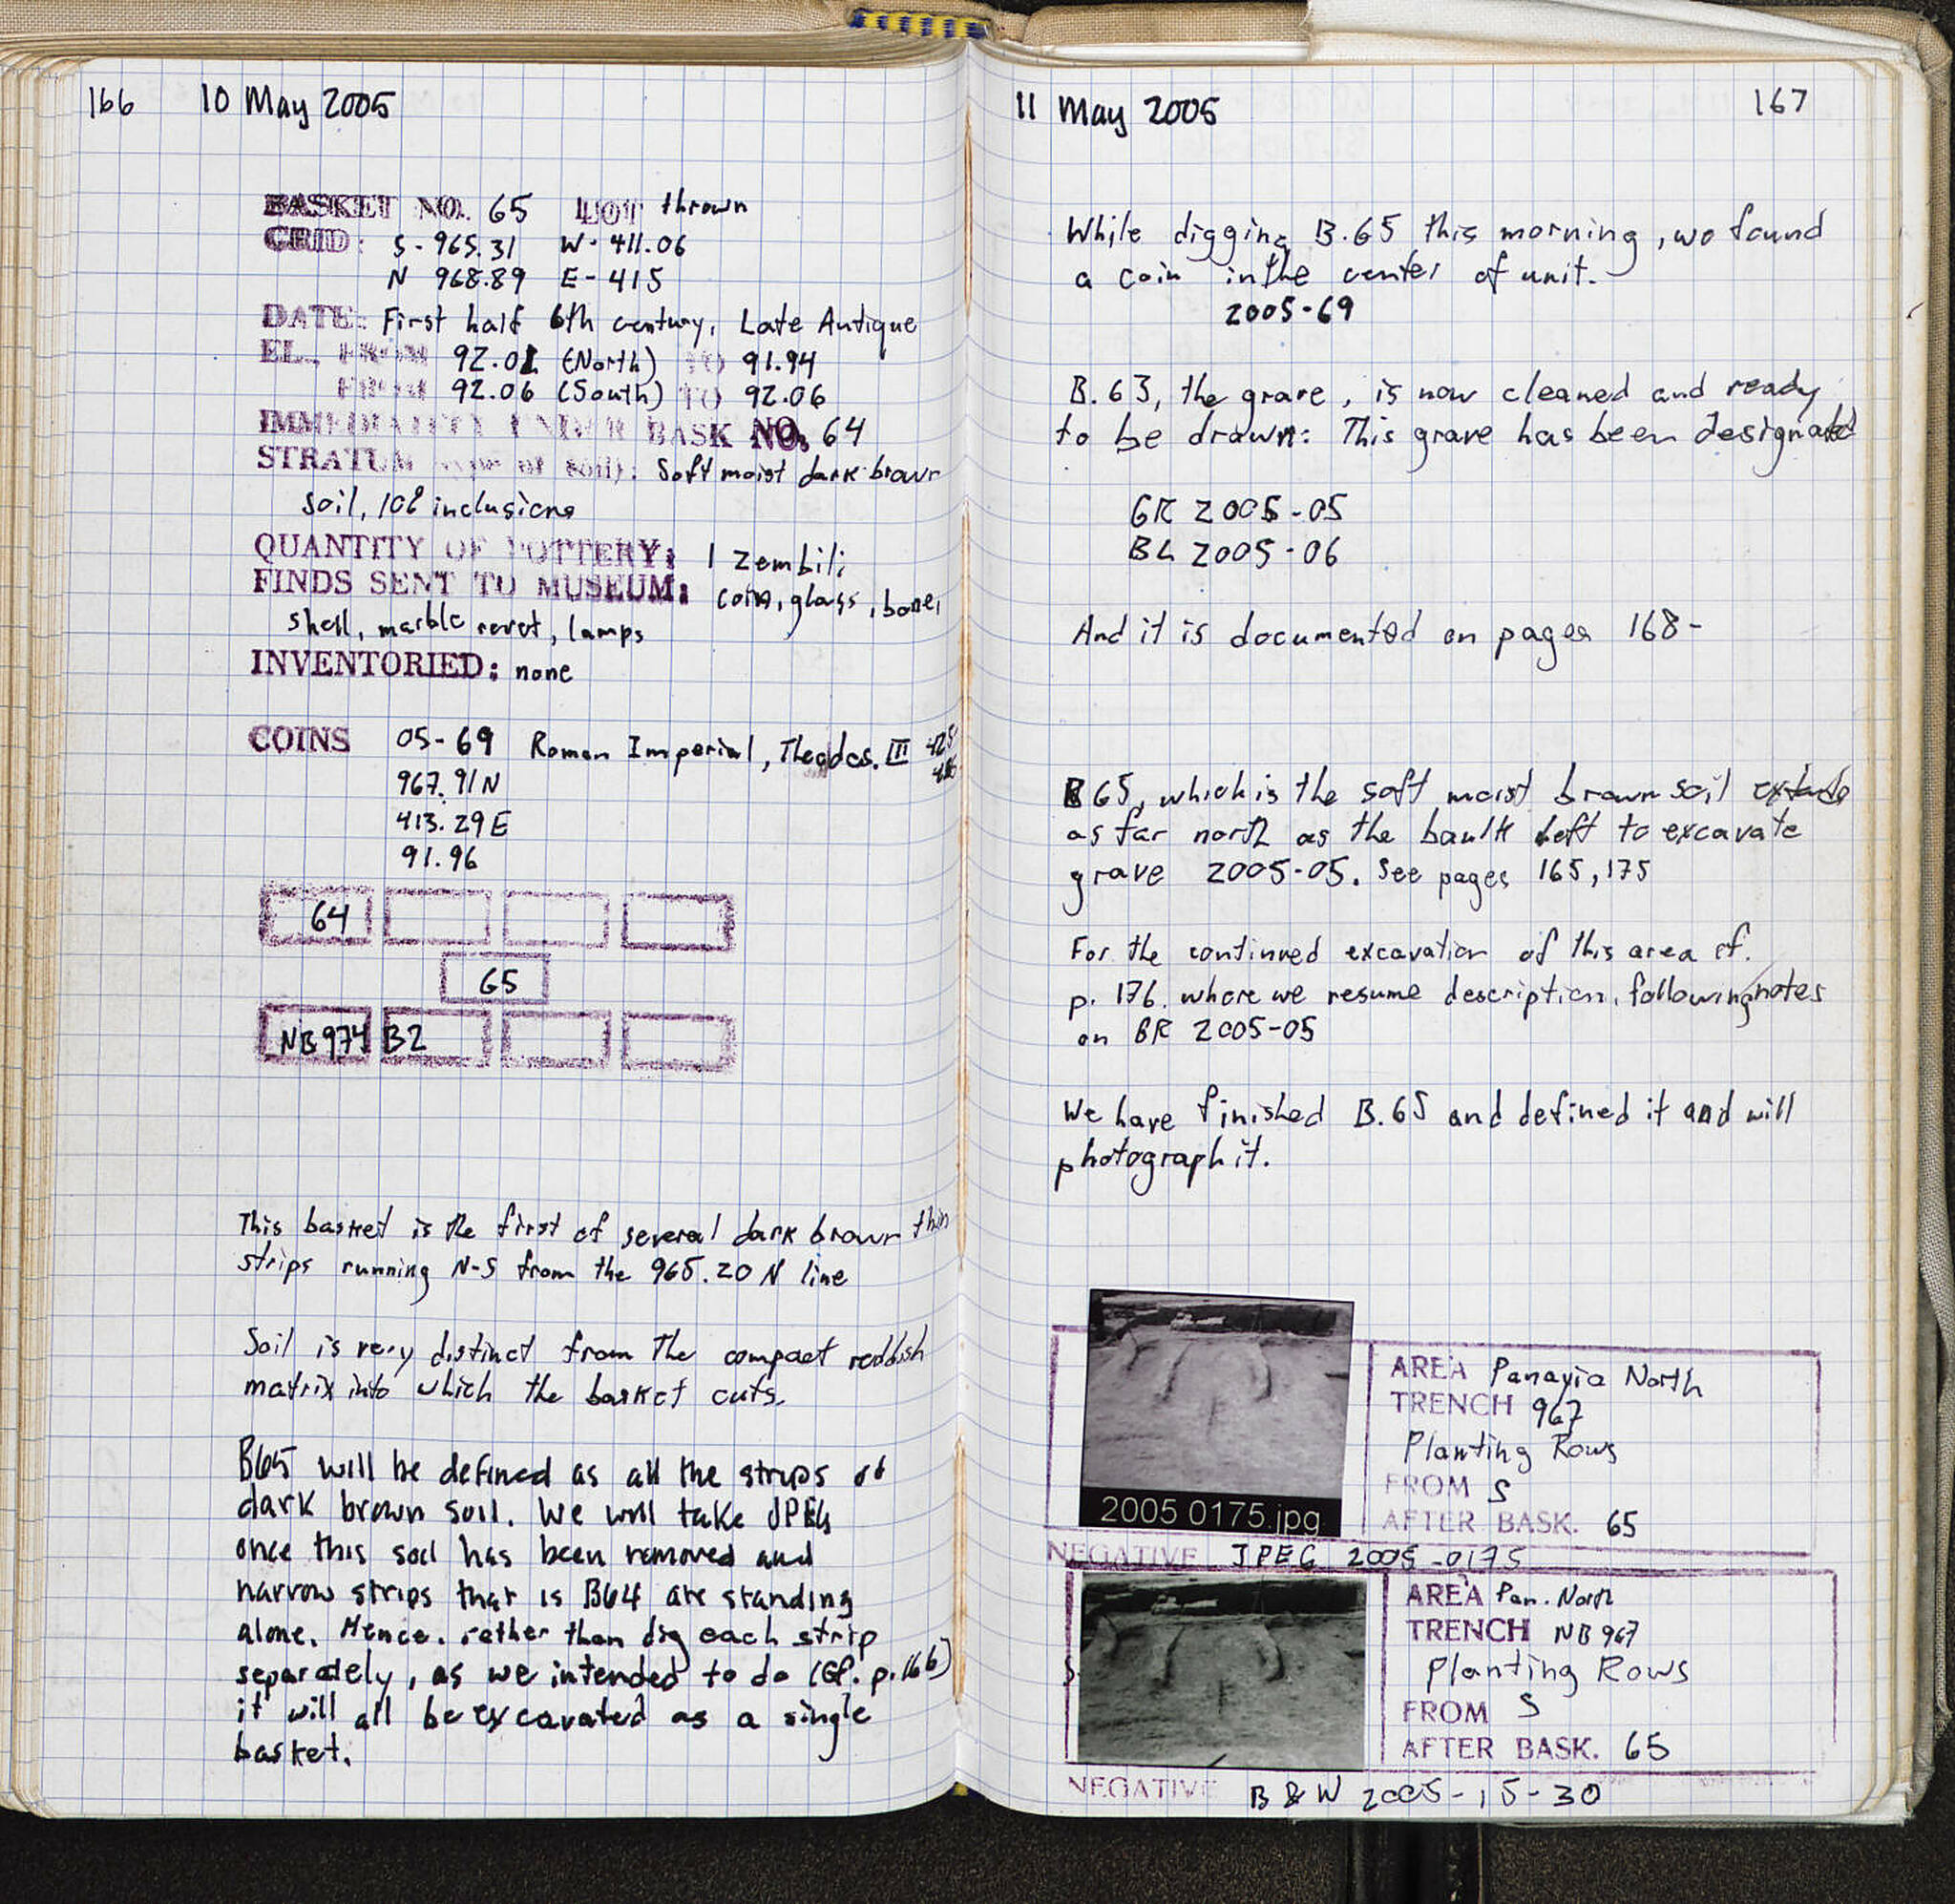 166 10 May 2005
BASKET NO. 65 LOT thrown
GRID: S-965.31 W-411.06
N 968.89 E-415
DATE: First half 6th century, Late Antique
EL., FROM 92.01 (North) TO 91.94
FROM 92.06 (South) TO 92.06
IMMEDIATELY UNDER BASK NO. 64
STRATUM (type of soil): Soft moist dark brown
soil, 10% inclusions
QUANTITY OF POTTERY: 1 zembili
FINDS SENT TO MUSEUM: coin, glass, bone,
shell, marble revet, lamps
INVENTORIED: none
COINS 05-69 Roman Imperial, Theodos. II 425
967.91N
413.29E
91.96
64
65
NB974 B2
This basket is the first of several dark brown thin
strips running N-S from the 965.20 N line
Soil is very distinct from the compact reddish
matrix into which the basket cuts.
B65 will be defined as all the strips of
dark brown soil. We will take JPEG
once this soil has been removed and
narrow strips that is B64 are standing
alone. Hence. rather than dig each strip
separately, as we intended to do (Cf. p. 166)
it will all be excavated as a single
basket.
11 May 2005 167
While digging B.65 this morning, we found
a coin in the center of unit.
2005-69
B.63, the grave, is now cleaned and ready
to be drawn: This grave has been designated
GR 2005-05
BL 2005-06
And it is documented on pages 168-
B65, which is the soft moist brown soil extends
as far north as the baulk left to excavate
grave 2005-05. See pages 165, 175
For the continued excavation of this area cf.
p. 176. where we resume description, following notes
on GR 2005-05
We have finished B.65 and defined it and will
photograph it.
2005 0175.jpg
AREA Panayia North
TRENCH 967
Planting Rows
FROM S
AFTER BASK. 65
NEGATIVE JPEG 2005-0175
AREA Pan. North
TRENCH NB 967
Planting Rows
FROM S
AFTER BASK. 65
NEGATIVE B&W 2005-15-30